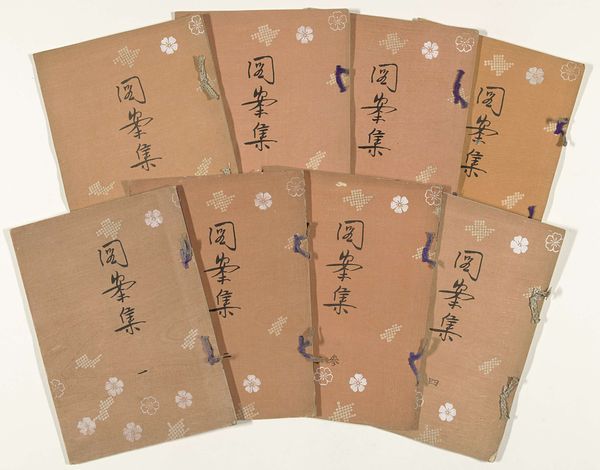 図案集
図案集
図案集
図案集
図案集
一
図案集
二
図案集
参
図案集
四